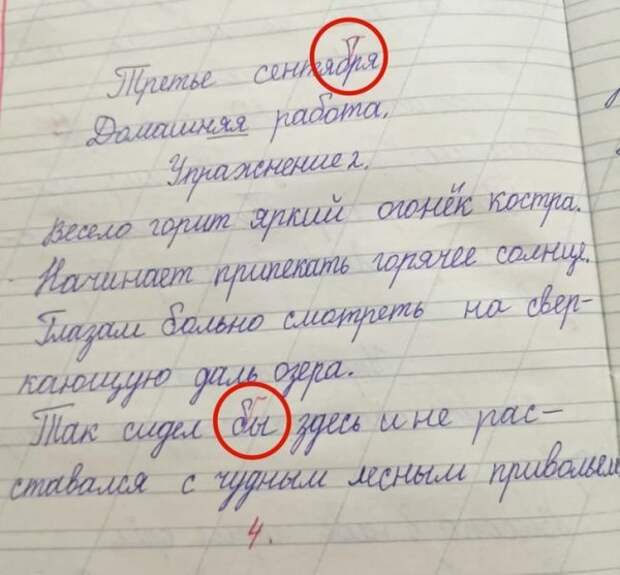 Третье сентября
Домашняя работа.
Упражнение 2.
Весело горит яркий огонёк костра.
Начинает припекать горячее солнце.
Глазам больно смотреть на свер-
кающую даль озера.
Так сидел бы здесь и не рас-
ставался с чудным лесным привольем
4.